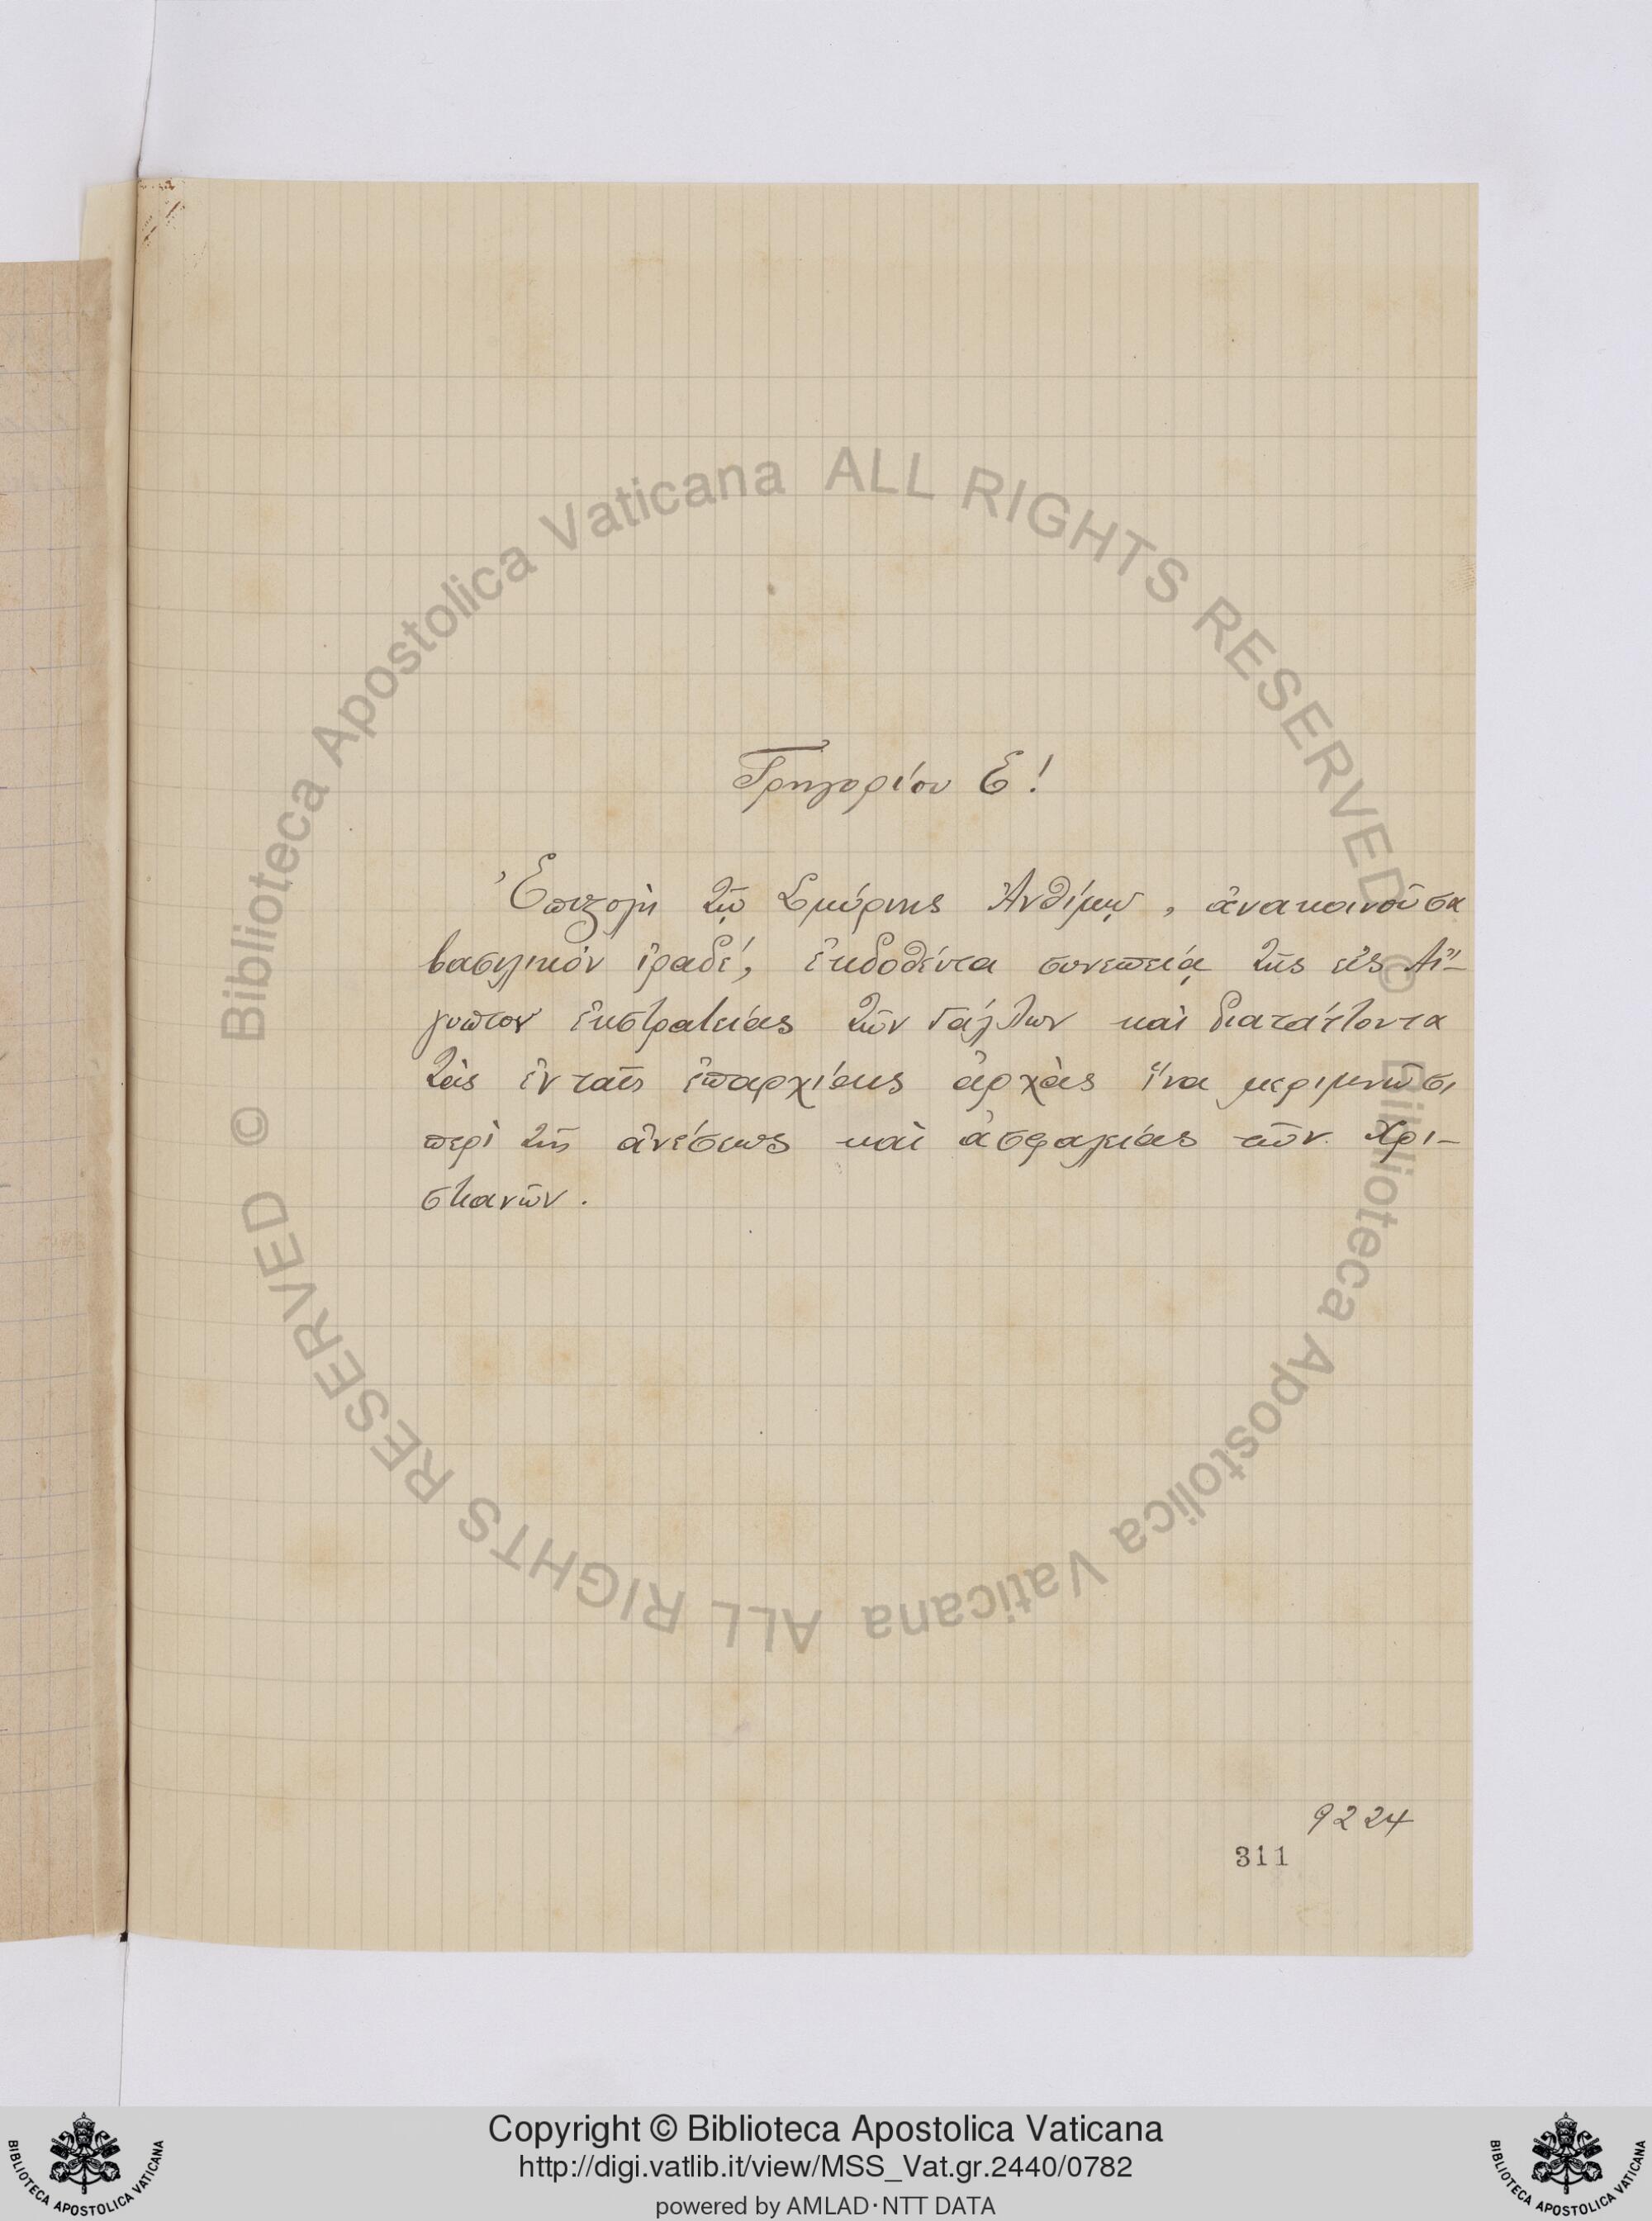 Γρηγορίου Ε!
Ἐπιστολὴ τῷ Σμύρνης Ἀνθίμῳ, ἀνακοινοῦσα
βασιλικὸν ἰραδέ, ἐκδοθέντα συνεπείᾳ τῆς εἰς Αἴ-
γυπτον ἐκστρατείας τῶν Γάλλων καὶ διατάττοντα
τὰς ἐν ταῖς ἐπαρχίαις ἀρχὰς ἵνα μεριμνῶσι
περὶ τῆς ἀνέσεως καὶ ἀσφαλείας τῶν Χρι-
στιανῶν.
9224
311
Biblioteca Apostolica Vaticana ALL RIGHTS RESERVED ©
Biblioteca Apostolica Vaticana ALL RIGHTS RESERVED ©
Copyright © Biblioteca Apostolica Vaticana
http://digi.vatlib.it/view/MSS_Vat.gr.2440/0782
powered by AMLAD·NTT DATA
BIBLIOTECA APOSTOLICA VATICANA
BIBLIOTECA APOSTOLICA VATICANA